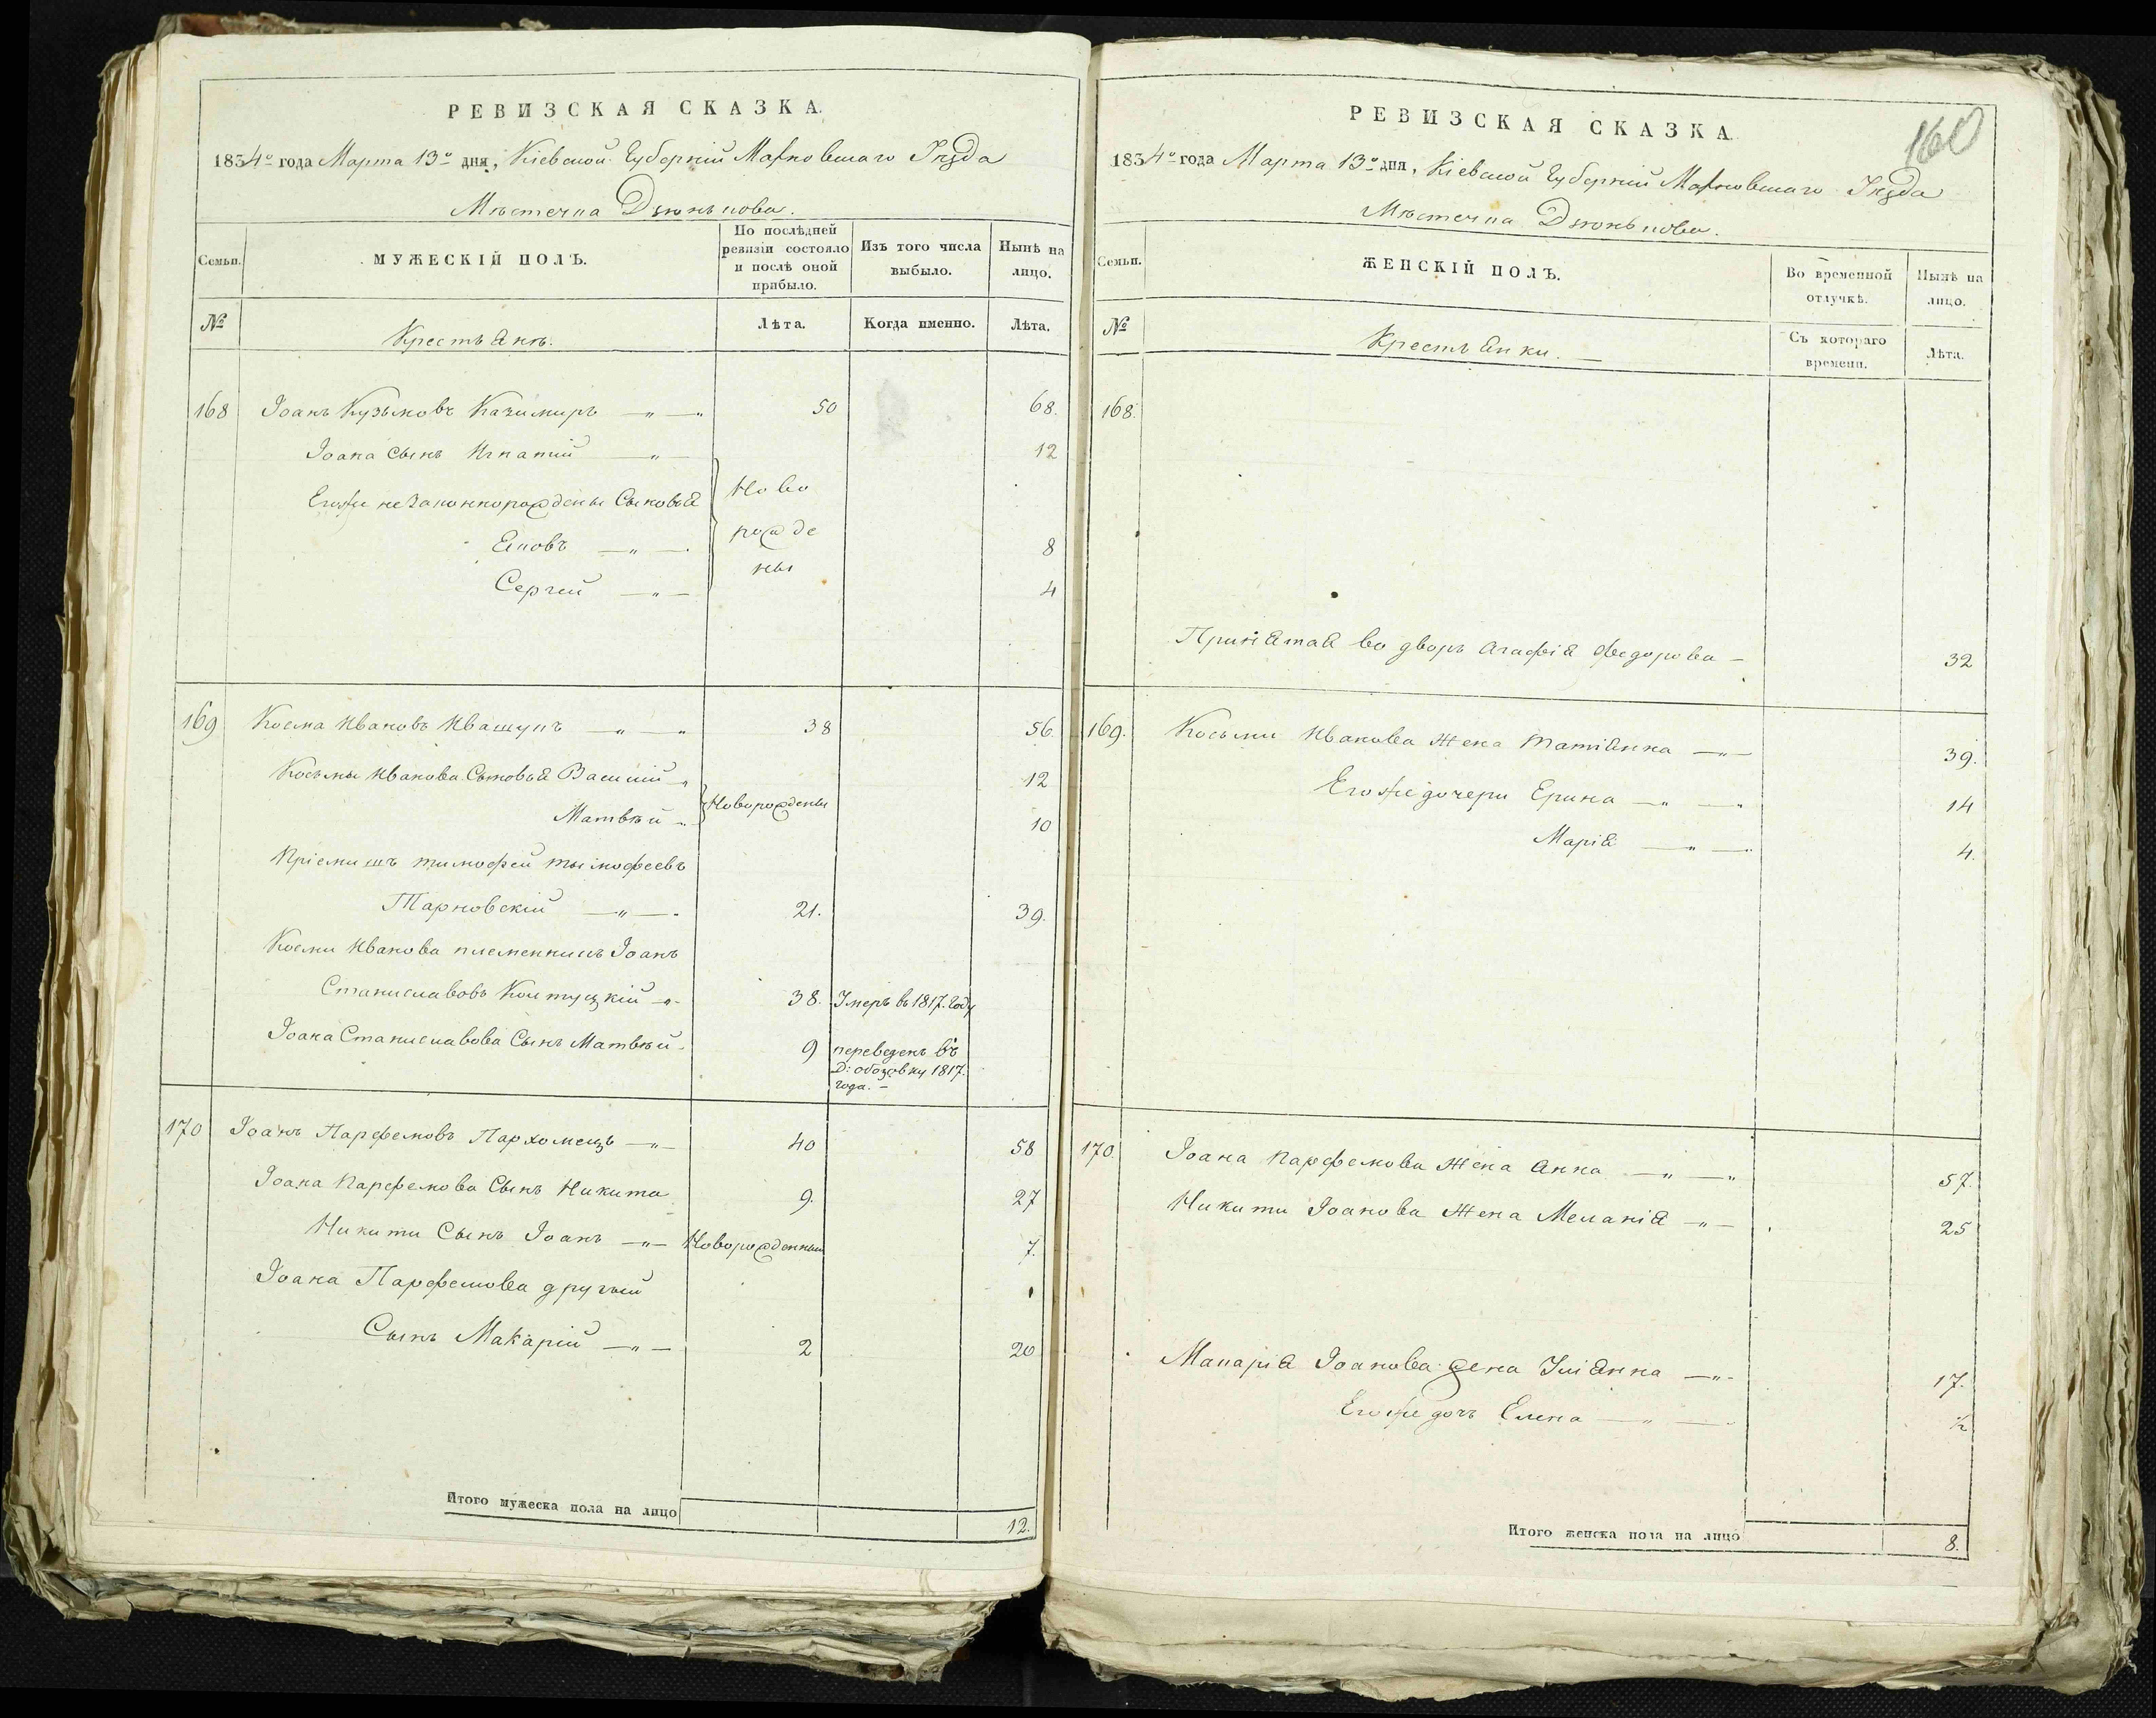 РЕВИЗСКАЯ СКАЗКА.
1834го года Марта 13го дня, Кіевской Губерніи Махновскаго Уѣзда
Мѣстечка Дзюнькова.
Семьи.
МУЖЕСКІЙ ПОЛЪ.
По послѣдней ревизіи состояло и послѣ оной прибыло.
Изъ того числа выбыло.
Нынѣ на лицо.
№
Крестьянѣ.
Лѣта.
Когда именно.
Лѣта.
168 Іоанъ Кузьмовъ Качимиръ 50 68.
Іоана сынъ Игнатій 12
Егоже незаконнорождены Сыновья
Ново
рожде
ны
Яковъ 8
Сергій 4
169 Косма Ивановъ Ивашукъ 38 56.
Косьмы Иванова Сыновья Василій 12
Новорождены
Матвѣй 10
Пріемишъ тимофей тымофеевъ
Тарновскій 21. 39.
Космы Иванова племенникъ Іоанъ
Станиславовъ 38. Умеръ въ 1817. году
Іоана Станиславова Сынъ Матвѣй 9 переведенъ въ
Д: обозовку 1817.
года.
170 Іоанъ Парфемовъ Пархомецъ 40 58
Іоана Парфемова Сынъ Никита 9. 27
Никити Сынъ Іоанъ Новорожденный 7.
Іоана Парфемова другый
Сынъ Макарій 2 20
Итого мужеска пола на лицо 12.
160
РЕВИЗСКАЯ СКАЗКА.
1834го года Марта 13го дня, Кіевской Губерніи Махновскаго Уѣзда
Мѣстечка Дзюнькова.
Семьи.
ЖЕНСКІЙ ПОЛЪ.
Во временной отлучкѣ.
Нынѣ на лицо.
№
Крестьянки.
Съ котораго времени.
Лѣта.
168.
Принятая во дворъ агафія федорова 32
169. Косьми Иванова жена татіянна 39.
Егоже дочери Ерина 14
Марія 4.
170. Іоана Парфемова жена анна 57.
Никити Іоанова жена Меланія 25
Макарія Іоанова жена Уліянна 17.
Егоже дочъ Елена ½
Итого женска пола на лицо 8.